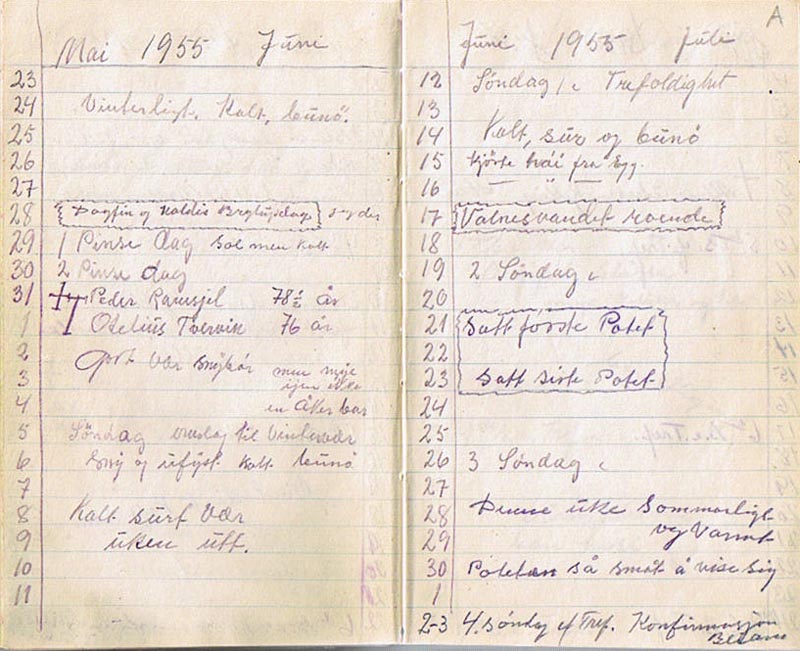 Mai 1955 Juni
23
24 Vinterligt. Kalt, bunö.
25
26
27
28 Dagfin og Haldis Bryllupsdag
29 1 Pinse dag sol men kalt
30 2 Pinse dag
31 Peder Ramsjel 78½ år
1 Otelius Tvervik 76 år
2 Gott vær snykár
3 men mye igjen ikke
4 en åker bar
5 Söndag omslag til Vintervær
6 Sny og ufyst kalt bunö
7
8 Kalt surt vær
9 uken utt.
10
11
A
Juni 1955 Juli
12 Söndag Trefoldight
13
14 Kalt, sur og bunö
15 kjörte hvái fra Egg.
16 — " —
17 Valnesvandet roende
18
19 2 Söndag
20
21 Satt förste Potet
22
23 Satt siste Potet
24
25
26 3 Söndag
27
28 Denne uke Sommerligt
29 og Varmt
30 Poteten så smät å vise sig
1
2-3 4. söndag ef Tref. Konfirmasjon